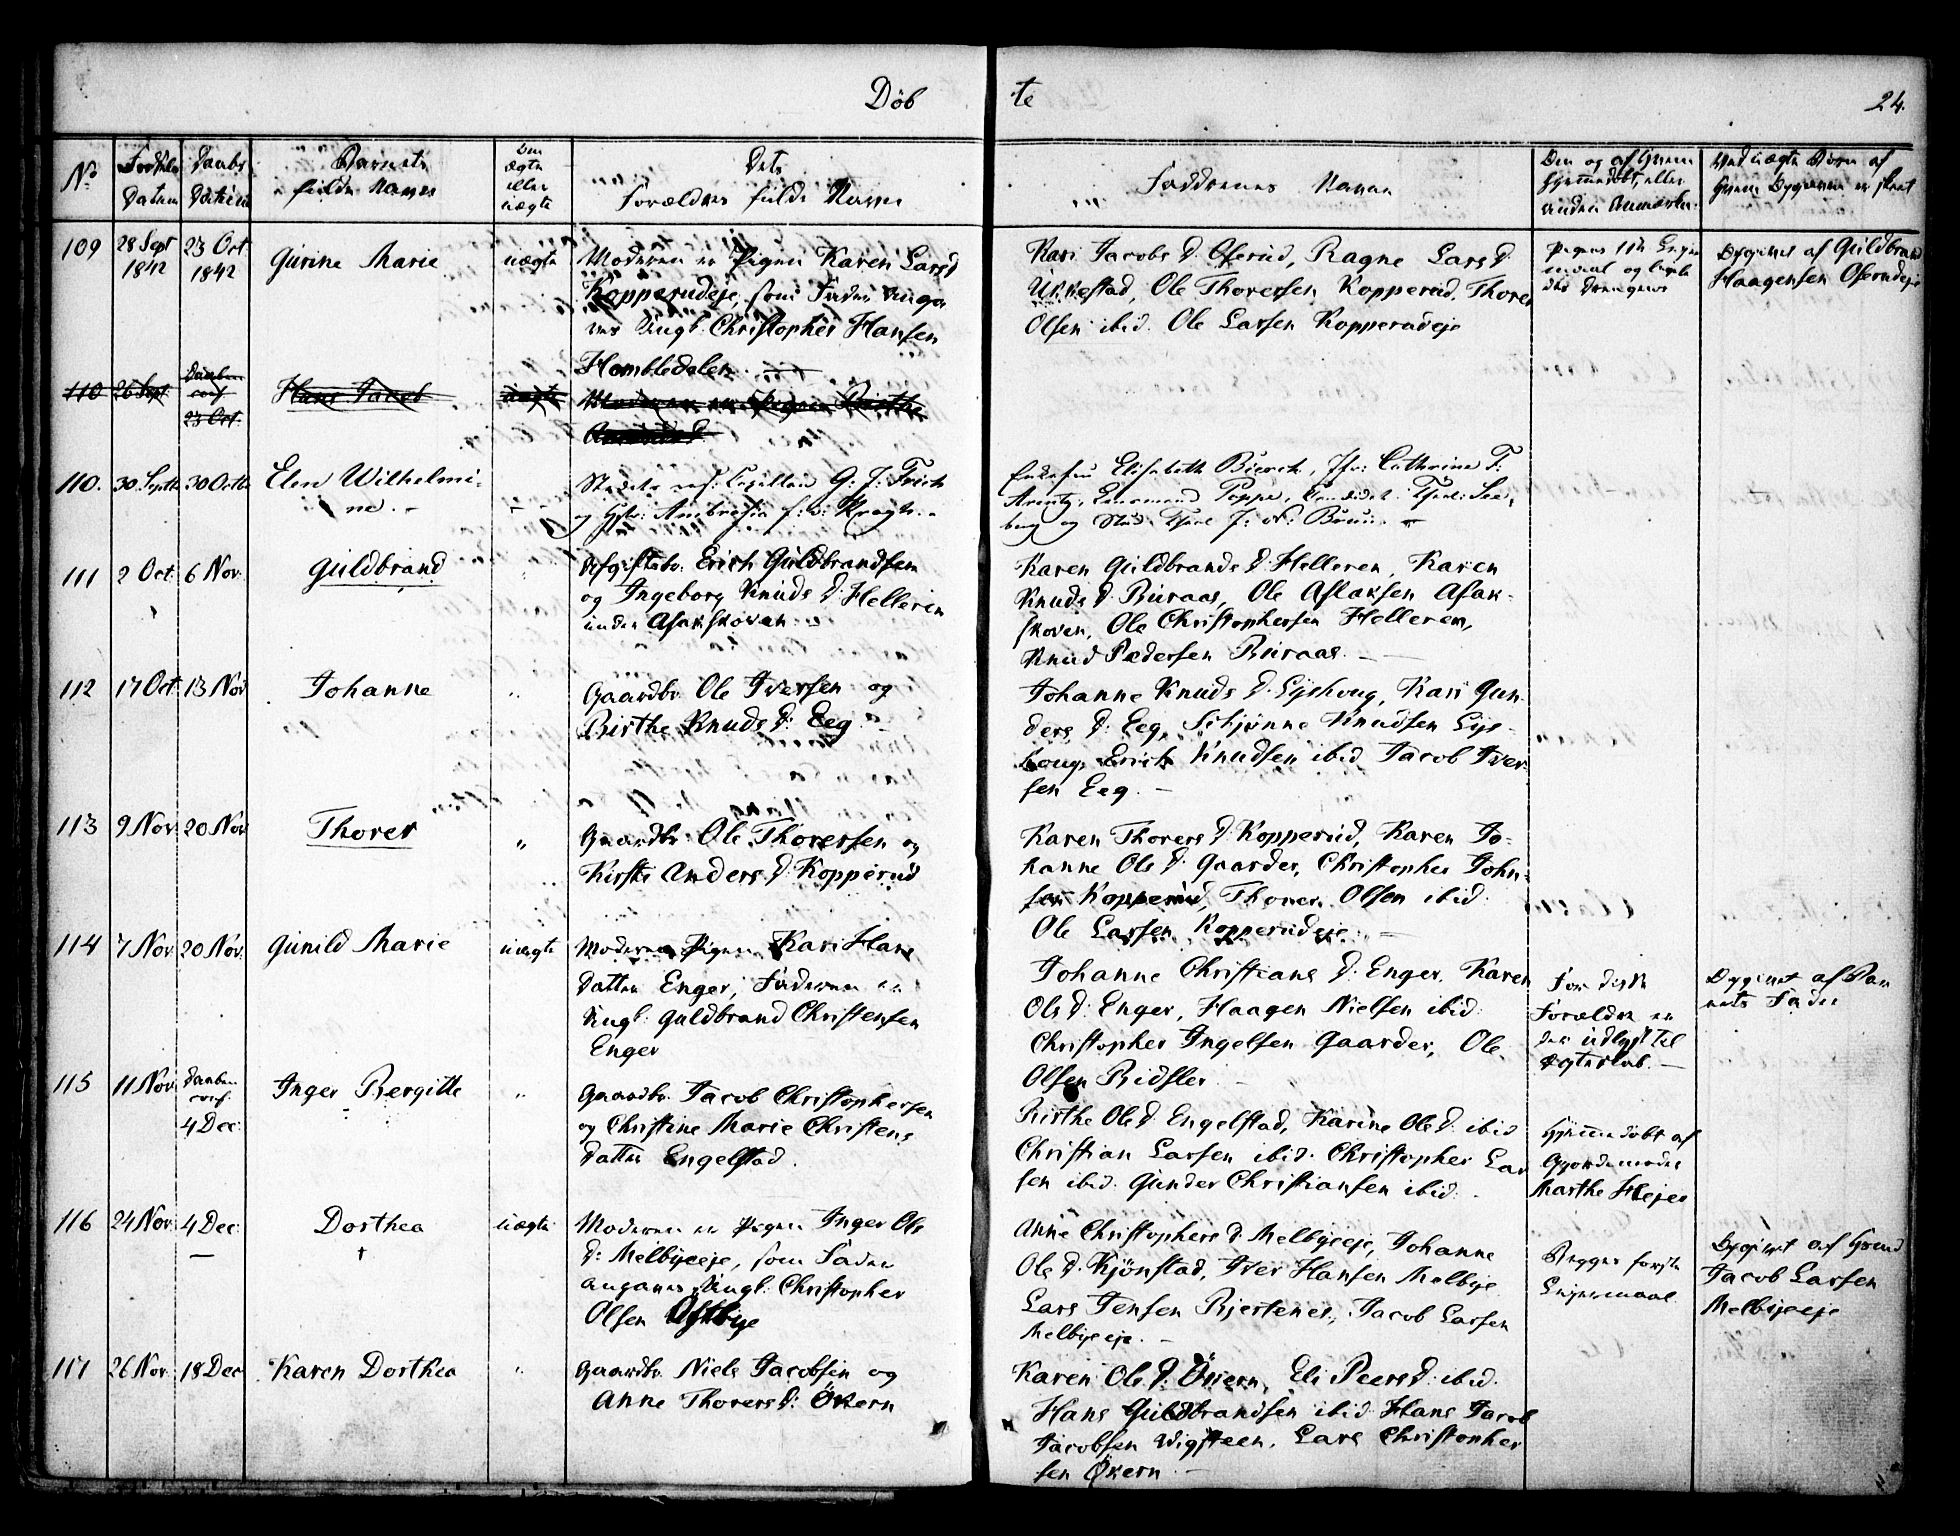 Döb te 24.
No
Fødsels
Datum
Daabs
Datum
Barnets
fulde Navn
Om
ægte
eller
uægte
Dets
Forældres fulde Navne
Faddernes Navne
Om og af hvem
hjemmedøbt, eller
anden Anmærkn.
Ved uægte Børn af
hvem Opgaven er skeet
109
28 Sept
1842
23 Oct
1842
Gurine Marie
uægte
Moderen er Pigen Karen Larsd
Kopperudeje, som Fader angi
ves Ungk. Christopher Hansen
Hombledalen
Kari Jacobs D. Oserud, Ragne Lars D.
Ukkestad, Ole Thorersen Kopperud, Thorer
Olsen ibid. Ole Larsen Kopperudeje
Pigens 1ste
og
Drengens
Opgivet af Guldbrand
Haagensen Oserudeje
110
26 Sept.
Daaben
conf.
23 Oct.
Hans Jacob
uægte
Moderen er Pigen Birthe
110.
30 Septb
30 Octb
Elen Wilhelmi-
ne. -
Stedets res: Capellan G. J. Frich
og Hstr: Ambrosia f: v: Kragh. -
Enkefru Elisabeth Bierch, Jfr: Cathrine F:
og Stud:
111
2 Oct.
6 Nov.
Guldbrand
Afgiftsbr. Erich Guldbrandsen
og Ingeborg Knuds D. Helleren
under Asakskoven
Karen Guldbrands D. Helleren, Karen
Knuds D. Buraas, Ole Aslaksen Asak-
skoven, Ole Christophersen Helleren,
Knud Pedersen Buraas. -
112
17 Oct.
13 Nov
Johanne
"
Gaardbr. Ole Iversen og
Birthe Knuds D: Eeg. -
Johanne Knuds D. Lyshoug, Kari Gun-
ders D. Eeg, Knudsen Lys-
houg, Erich Knudsen ibid Jacob Iver-
sen Eeg. -
113
9 Nov.
20 Nov
Thorer
"
Gaardbr. Ole Thorersen og
Kirsti Anders D. Kopperud
Karen Thorers D. Kopperud, Karen Jo-
hanne Ole D. Gaarder, Christopher John-
sen Kopperud, Thorer Olsen ibid.
Ole Larsen Kopperudeje. -
114
7 Nov
20 Nov.
Gunild Marie
uægte
Moderen Pigen Kari Hans
Datter Enger, Faderen er
Ungk. Guldbrand Christensen
Enger
Johanne Christians D. Enger, Karen
Ols D. Enger, Haagen Nielsen ibid.
Christopher Ingelsen Gaarder, Ole
Olsen Ridsler. -
For disse
Forældre er
der udlyst til
Ægteskab. -
Opgivet af Bar
nets Fader
115
11 Nov.
Daaben
conf.
4 Dec.
Inger Bergitte
"
Gaardbr. Jacob Christophersen
og Christine Marie Christens
Datter Engelstad.
Birthe Ole D. Engelstad, Karine Ole D. ibid
Christian Larsen ibid. Christopher Lar
sen ibid. Gunder Christiansen ibid. -
Hjemmedøbt af
Gjordemoder
Marthe Hejer
116
24 Nov.
4 Dec.
Dorthea
†
uægte
Moderen er Pigen Inger Ole
D: Melbyeeje, som Fader
angaves Ungk. Christopher
Olsen Østbye
Anne Christophers D. Melbyeeje, Johanne
Ole D. Kjönstad, Iver Hansen Melbye
Lars Jensen Bjertenes, Jacob Larsen
Melbyeeje. -
Begges første
Leiermaal
Opgivet af Gmd
Jacob Larsen
Melbyeeje
117
26 Nov.
18 Dec
Karen Dorthea
"
Gaardbr. Niels Jacobsen og
Anne Thorers D: Ökern
Karen Ole D: Ökern, Eli Peers D: ibid.
Hans Guldbrandsen ibid Hans Jacob
Jacobsen Vigsteen, Lars Christopher
sen Økern. -